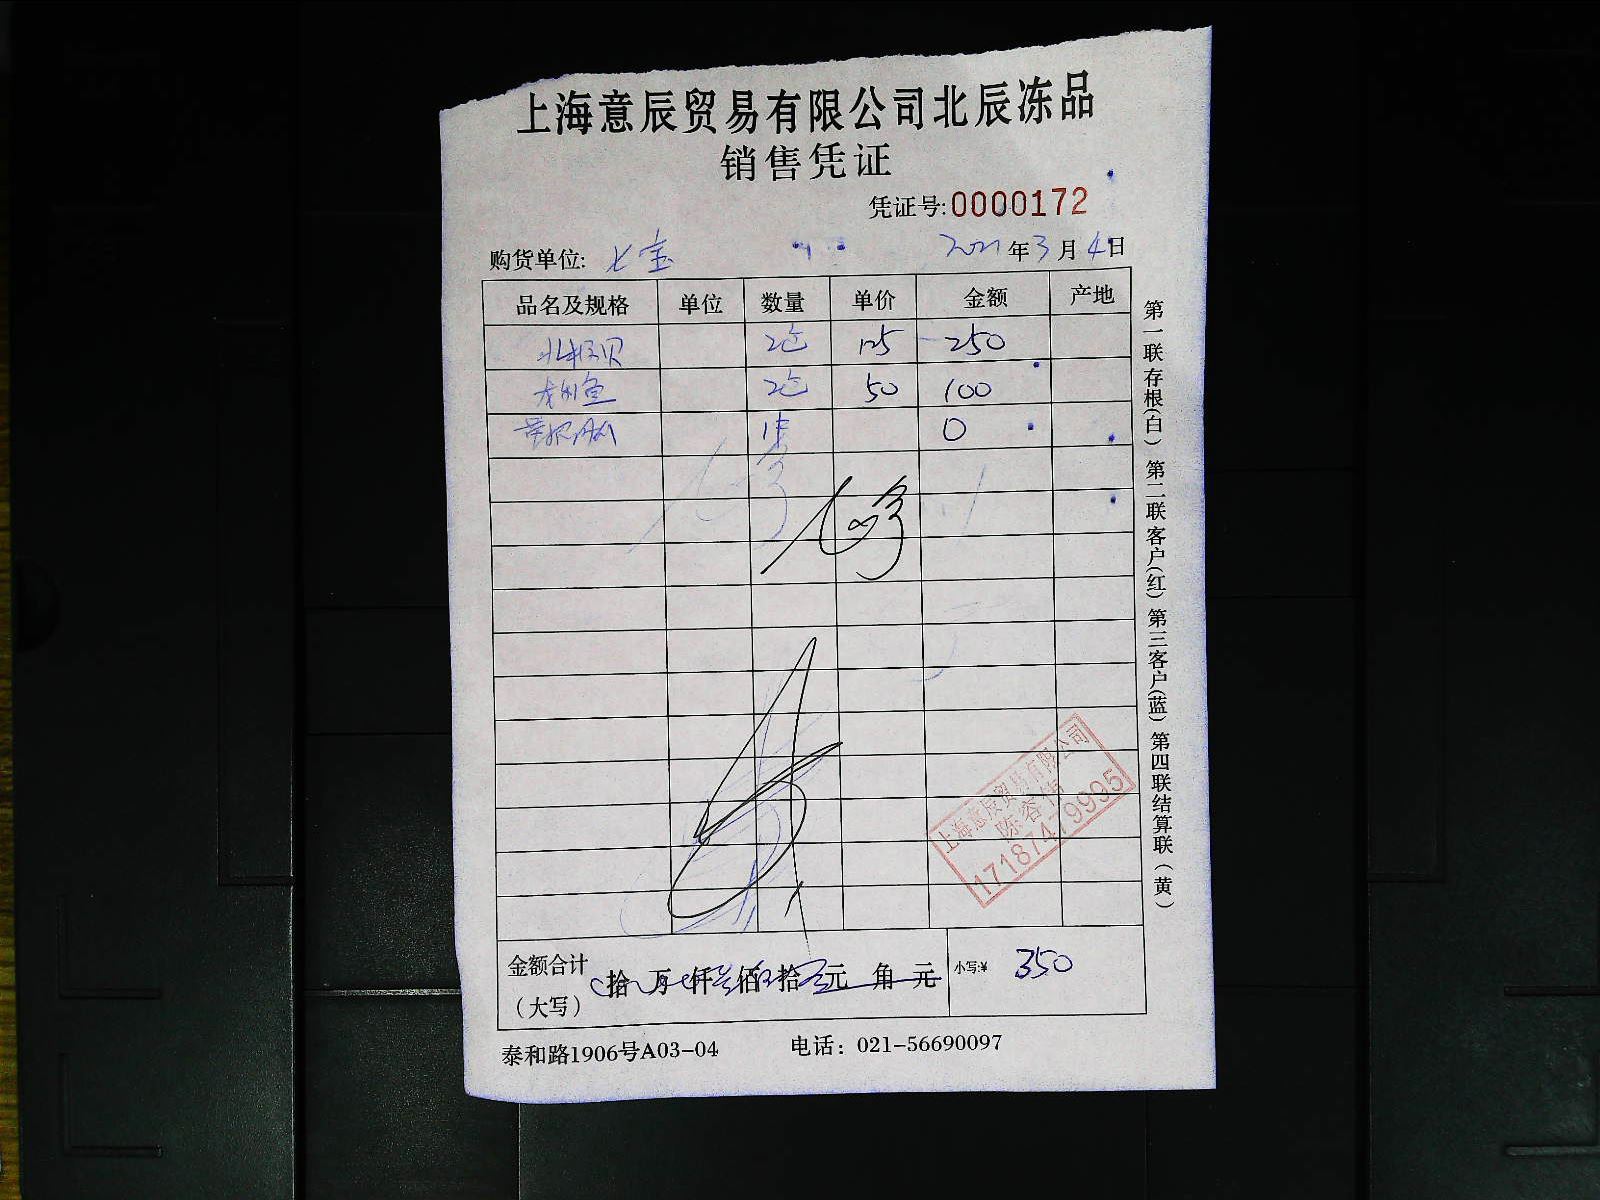 上海意辰贸易有限公司北辰冻品
销售凭证
凭证号:0000172
购货单位: 七宝 2021年3月4日
品名及规格 单位 数量 单价 金额 产地
北极贝 2包 125 250
龙利鱼 2包 50 100
1件 0
上海意辰贸易有限公司
陈容伟
17187479995
金额合计 拾万仟佰拾元角元 小写:¥ 350
(大写)
泰和路1906号A03-04 电话：021-56690097
第一联存根(白) 第二联客户(红) 第三客户(蓝) 第四联结算联(黄)